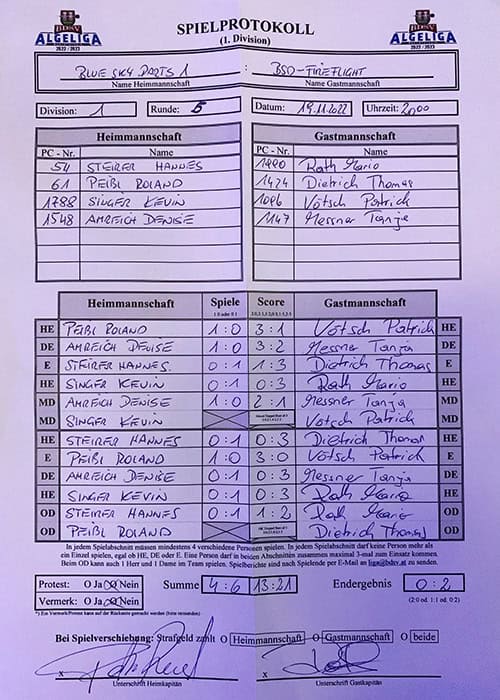 BDSV
ALGELIGA
2022 / 2023
SPIELPROTOKOLL
(1. Division)
BDSV
ALGELIGA
2022 / 2023
BLUE SKY DARTS 1 : BSD-FIREFLIGHT
Name Heimmannschaft Name Gastmannschaft
Division: 1 Runde: 5 Datum: 19.11.2022 Uhrzeit: 2000
Heimmannschaft Gastmannschaft
PC - Nr. Name PC - Nr. Name
54 STEIRER HANNES Rath Mario
61 PEIBL ROLAND 1424 Dietrich Thomas
1788 SINGER KEVIN 1096 Vötsch Patrick
1548 AMREICH DENISE 1147 Messner Tanja
Heimmannschaft Spiele Score Gastmannschaft
1:0 oder 0:1
HE PEIBL ROLAND 1:0 3:1 Vötsch Patrick HE
DE AMREICH DENISE 1:0 3:2 Messner Tanja DE
E STEIRER HANNES. 0:1 1:3 Dietrich Thomas E
HE SINGER KEVIN 0:1 0:3 Rath Mario HE
MD AMREICH DENISE 1:0 2:1 Messner Tanja MD
MD SINGER KEVIN Vötsch Patrick MD
HE STEIRER HANNES 0:1 0:3 Dietrich Thomas HE
E PEIBL ROLAND 1:0 3:0 Vötsch Patrick E
DE AMREICH DENISE 0:1 0:3 Messner Tanja DE
HE SINGER KEVIN 0:1 0:3 Rath Mario HE
OD STEIRER HANNES 0:1 1:2 Rath Mario OD
OD PEIBL ROLAND Dietrich Thomas OD
In jedem Spielabschnitt müssen mindestens 4 verschiedene Personen spielen. In jedem Spielabschnitt darf keine Person mehr als
ein Einzel spielen, egal ob HE, DE oder E. Eine Person darf in beiden Abschnitten zusammen maximal 3-mal zum Einsatz kommen.
Beim OD kann auch 1 Herr und 1 Dame im Team spielen. Spielberichte sind nach Spielende per E-Mail an liga@bdsv.at zu senden.
Protest: O Ja O Nein Summe 4:6 13:21 Endergebnis 0:2
Vermerk: O Ja O Nein (2:0 od. 1:1 od. 0:2)
*) Ein Vermerk/Protest kann auf der Rückseite gemacht werden (bitte vermerken)
Bei Spielverschiebung: Strafgeld zahlt O Heimmannschaft O Gastmannschaft O beide
x x
Unterschrift Heimkapitän Unterschrift Gastkapitän